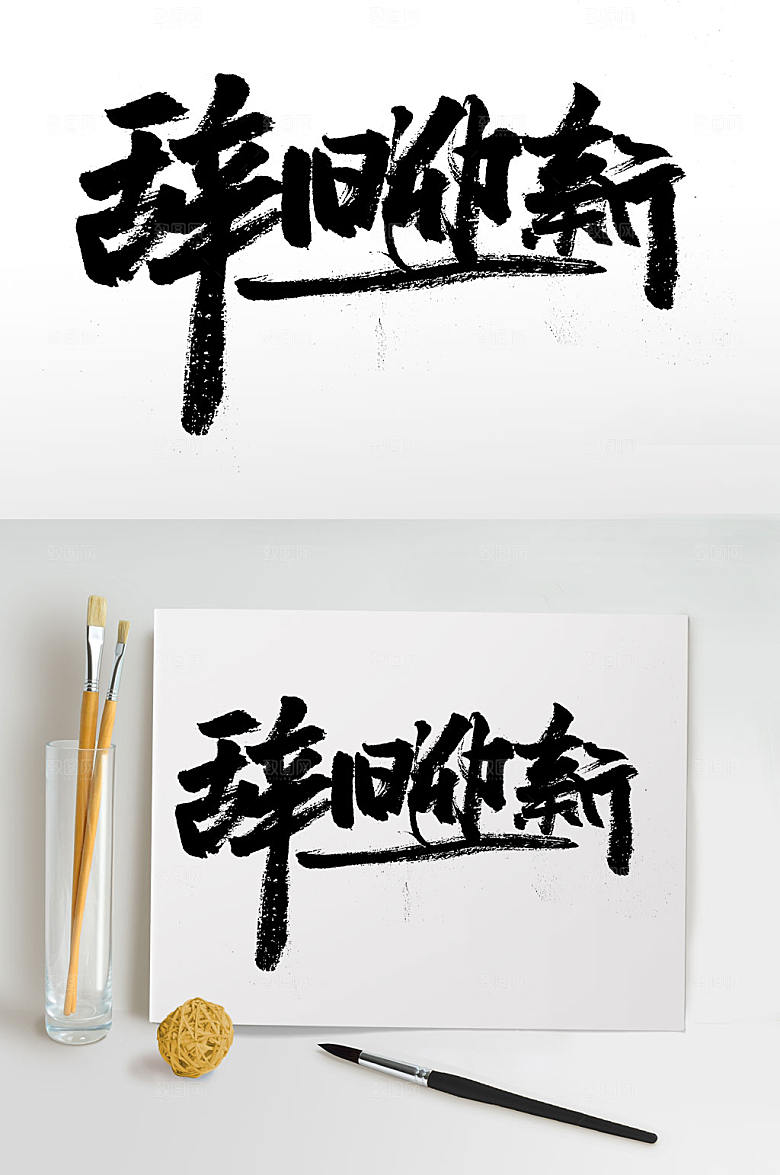 辞旧迎新
辞旧迎新